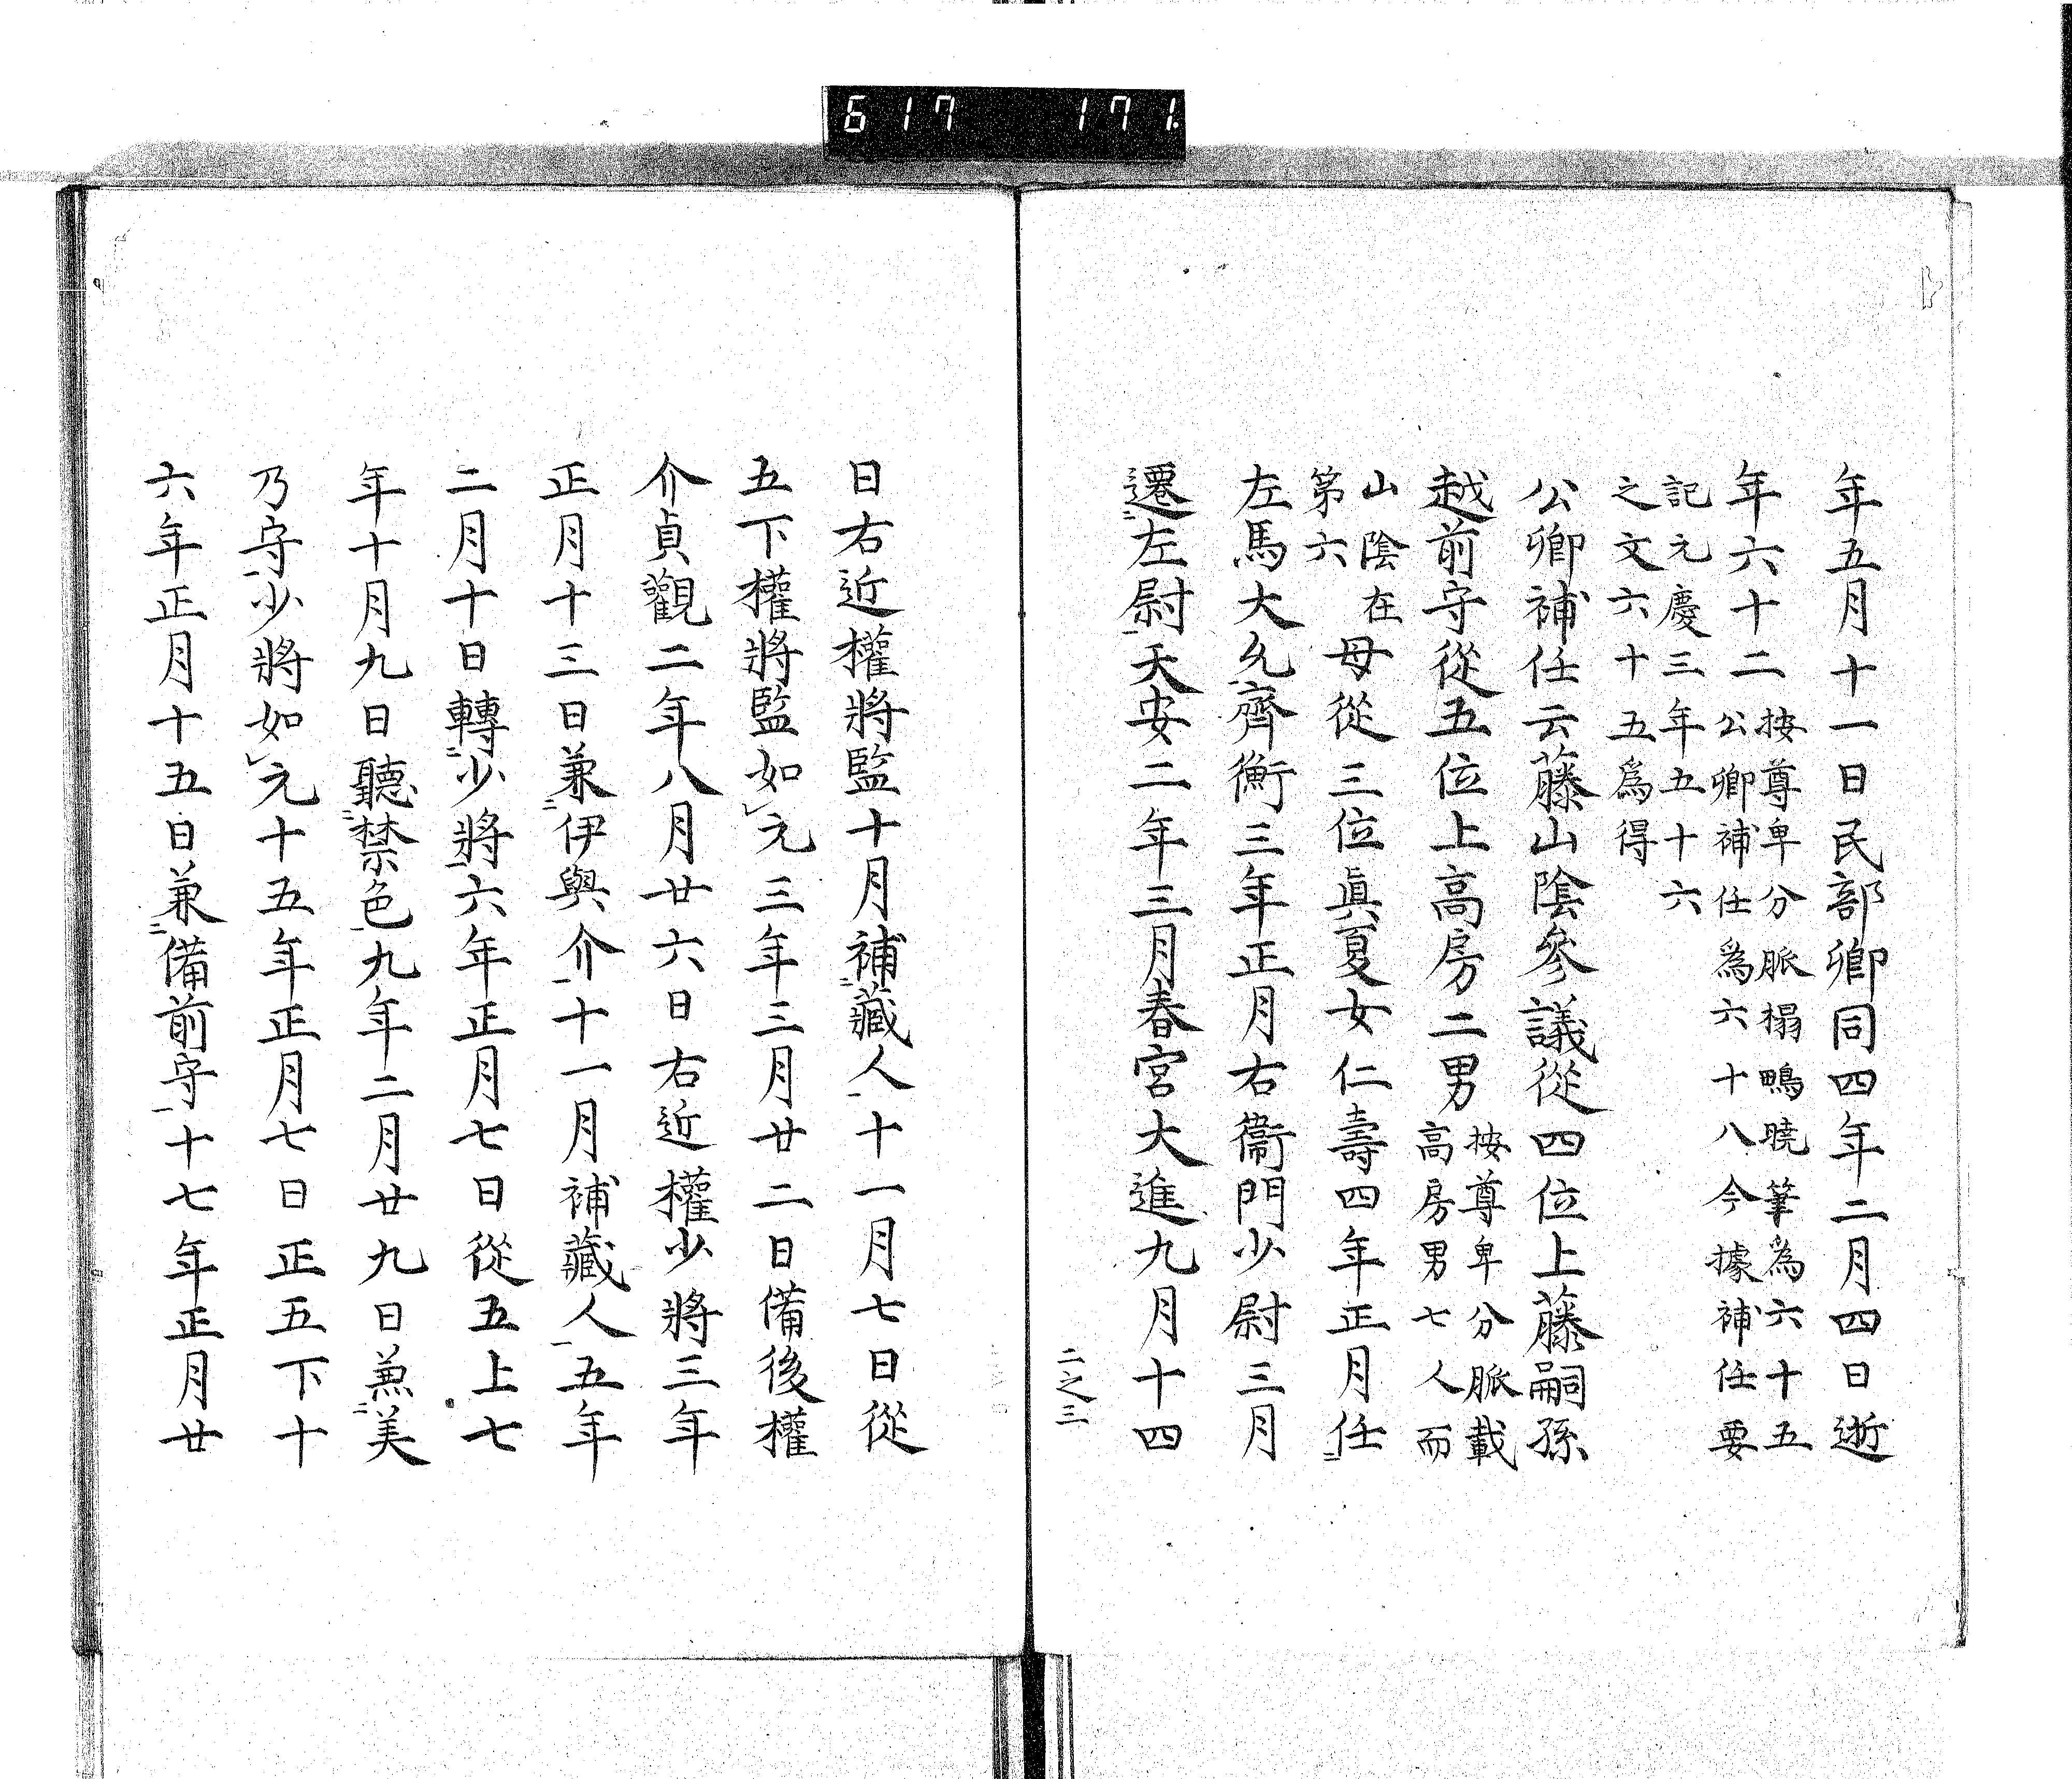 617 171.
年五月十一日民部卿同四年二月四日逝
年六十二按尊卑分脈搨鴨曉筆為六十五
公卿補任為六十八今據補任要
記元慶三年五十六
之文六十五爲得
公卿補任云藤山陰參議從四位上藤嗣孫
越前守從五位上高房二男按尊卑分脈載
高房男七人而
山陰在
第六母從三位眞夏女仁壽四年正月任
左馬大允齊衡三年正月右衞門少尉三月
遷二左尉一天安二年三月春宮大進九月十四
二之三
日右近權將監十月補二藏人一十一月七日從
五下權將監如レ元三年三月廿二日備後權
介貞觀二年八月廿六日右近權少將三年
正月十三日兼二伊與介一十一月補藏人一五年
二月十日轉二少將一六年正月七日從五上七
年十月九日聽二禁色一九年二月廿九日兼二美
乃守一少將如レ元十五年正月七日正五下十
六年正月十五日兼二備前守一十七年正月廿